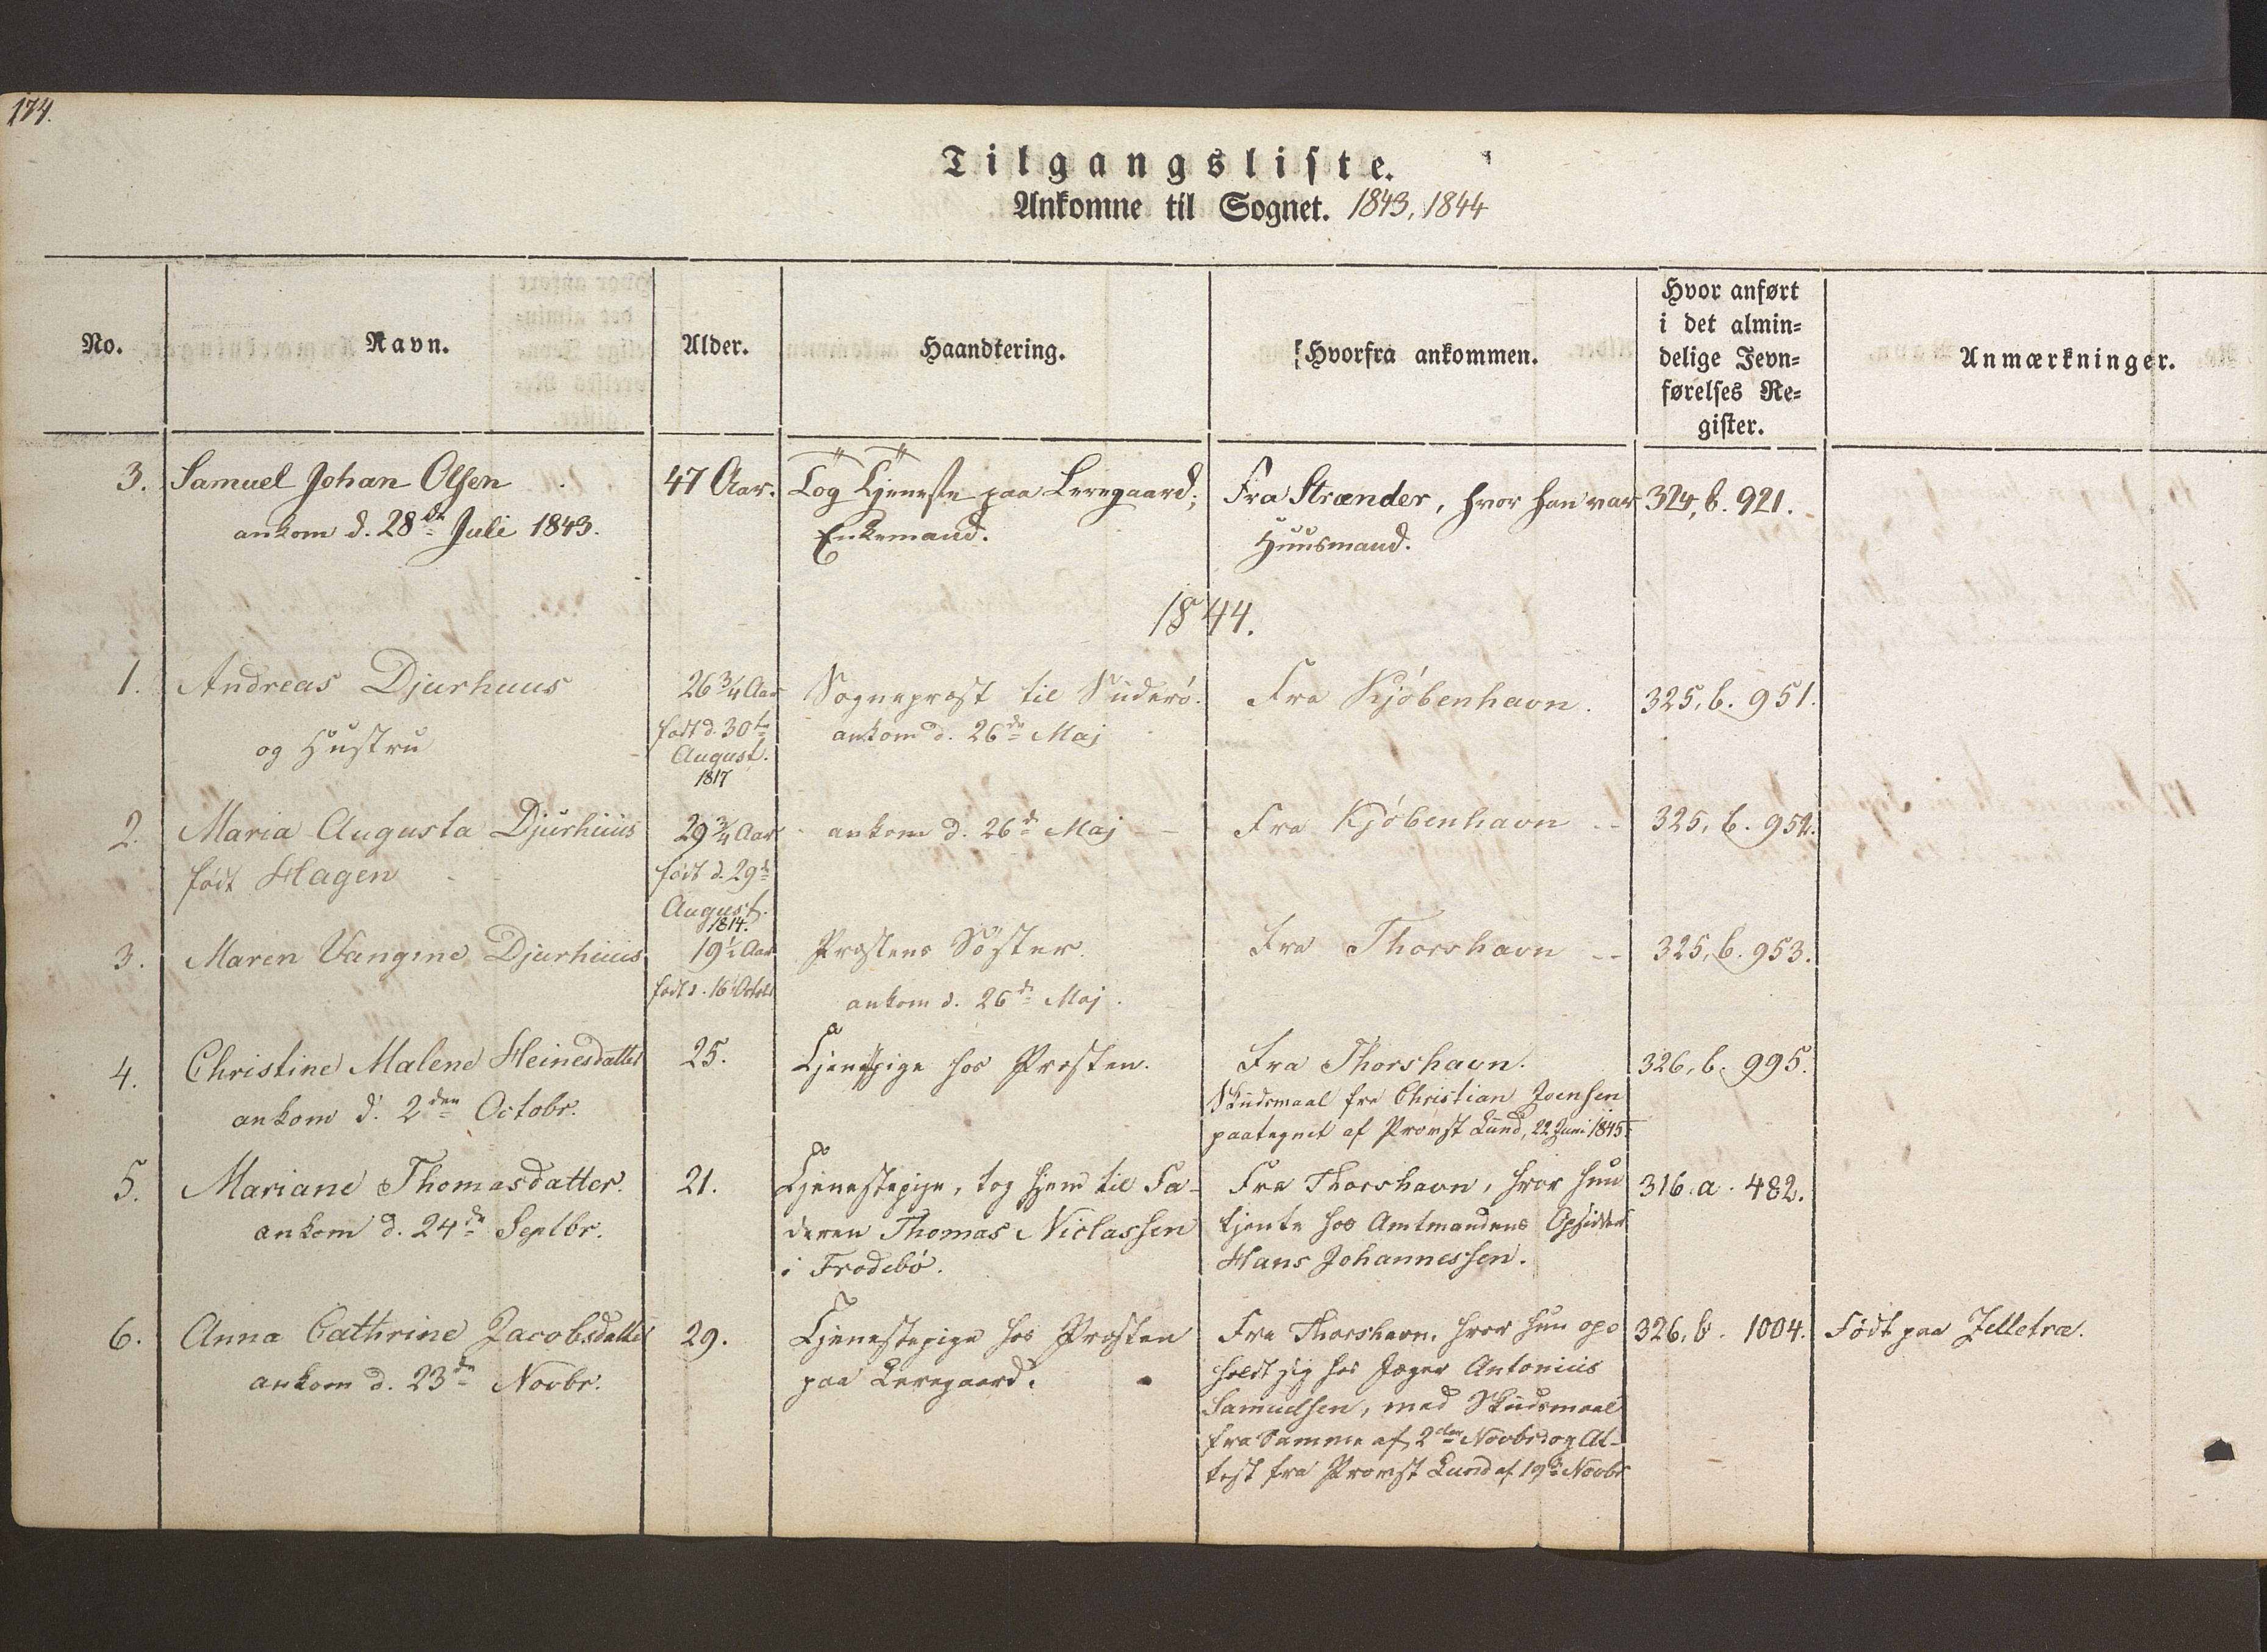 174.
Tilgangsliste.
Ankomne til Sognet. 1843, 1844
No.
Navn.
Alder.
Haandtering.
Hvorfra ankommen.
Hvor anført
i det almin=
delige Jevn=
førelses Re=
gister.
Anmærkninger.
3. Samuel Johan Olsen 47 Aar. Tog Tjeneste paa Leregaard; Fra Strænder, hvor han var 324, b. 921.
ankom d. 28de Juli 1843. Enkemand. Huusmand.
1844.
1. Andreas Djurhuus 26 3/4 Aar Sognepræst til Suderö. Fra Kjöbenhavn. 325, b. 951.
og Hustru födt d. 30te August. 1817 ankom d. 26de Maj
2. Maria Augusta Djurhuus 29 3/4 Aar ankom d. 26de Maj Fra Kjöbenhavn 325, b. 952.
födt Hagen födt d. 29de August. 1814.
3. Maren Vangine Djurhuus 19 1/2 Aar Præstens Söster. Fra Thorshavn 325, b. 953.
födt d. 16 Octob. ankom d. 26de Maj.
4. Christine Malene Heinesdatter 25. Tjenestpige hos Præsten. Fra Thorshavn. 326, b. 995.
ankom d. 2den Octobr. Skudsmaal fra Christian Joensen
paategnet af Provst Lund, 22 Juni 1845.
5. Mariane Thomasdatter. 21. Tjenestepige, tog hjem til Fa- Fra Thorshavn, hvor hun 316. a. 482.
ankom d. 24de Septbr. deren Thomas Niclassen tjente hos Amtmandens Opsidder
i Frodebö. Hans Johannessen.
6. Anna Cathrine Jacobsdatter 29. Tjenestepige hos Præsten Fra Thorshavn, hvor hun op- 326, b. 1004. Födt paa Zelletræ.
ankom d. 23de Novbr. paa Leregaard. holdt sig hos Jæger Antonius
Samuelsen, med Skudsmaal
fra Samme af 2den Novbr og At-
test fra Provst Lund af 19de Novbr